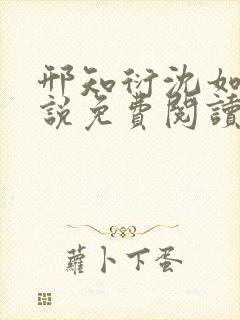 邢知衍沈如
說免費閱讀
蘿卜下蛋